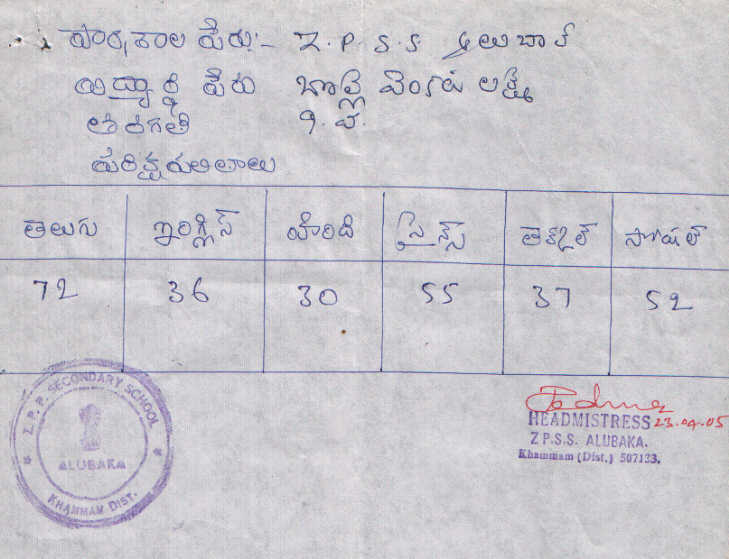 పాఠశాల పేరు:- Z.P.S.S ఆలుబాక
విద్యార్థి పేరు బొల్లె వెంకట లక్ష్మి
తరగతి 9. వ.
పరీక్ష ఫలితాలు
తెలుగు ఇంగ్లీస్ హింది సైన్స్ లెక్కల్ సోషల్
72 36 30 55 37 52
Z.P.P. SECONDARY SCHOOL
ALUBAKA
KHAMMAM DIST.
HEADMISTRESS 23.04.05
Z P.S.S. ALUBAKA.
Khammam (Dist.) 507133.